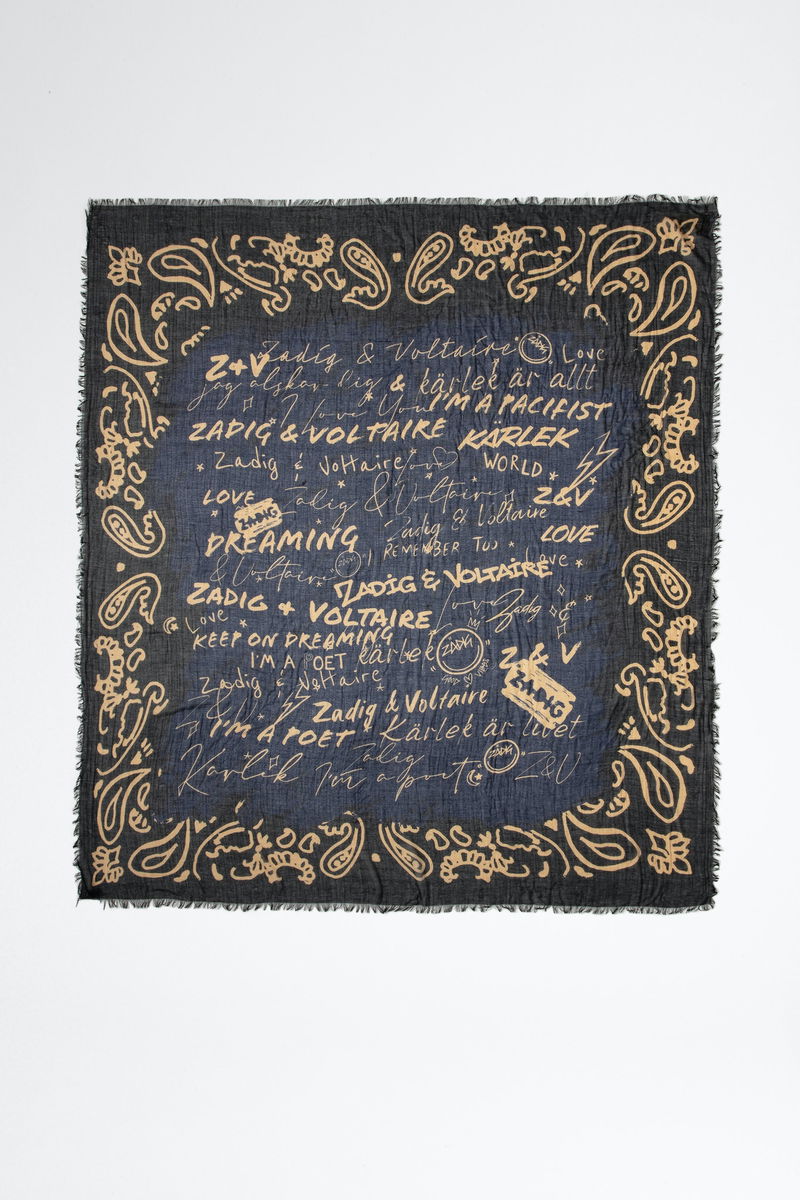 Zadig & Voltaire ZADIG Love
Z+V
jag älskar dig & kärlek är allt
I love You I'M A PACIFIST
ZADIG & VOLTAIRE KÄRLEK
Zadig & Voltaire love WORLD
LOVE Zadig & Voltaire Z&V
ZADIG Zadig & Voltaire
DREAMING I REMEMBER LOVE
& Voltaire ZADIG Love
ZADIG & VOLTAIRE
ZADIG + VOLTAIRE Love Zadig &
Love
KEEP ON DREAMING
I'M A POET kärlek ZADIG Z & V
Zadig & Voltaire ZADIG
Zadig & Voltaire
I'M A POET Kärlek är livet
Zadig
Kärlek I'm a poet ZADIG Z&V